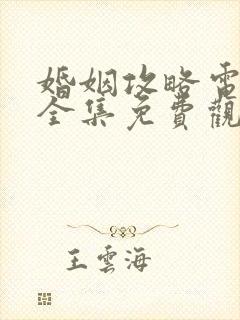 婚姻攻略電
全集免費觀
王雲海